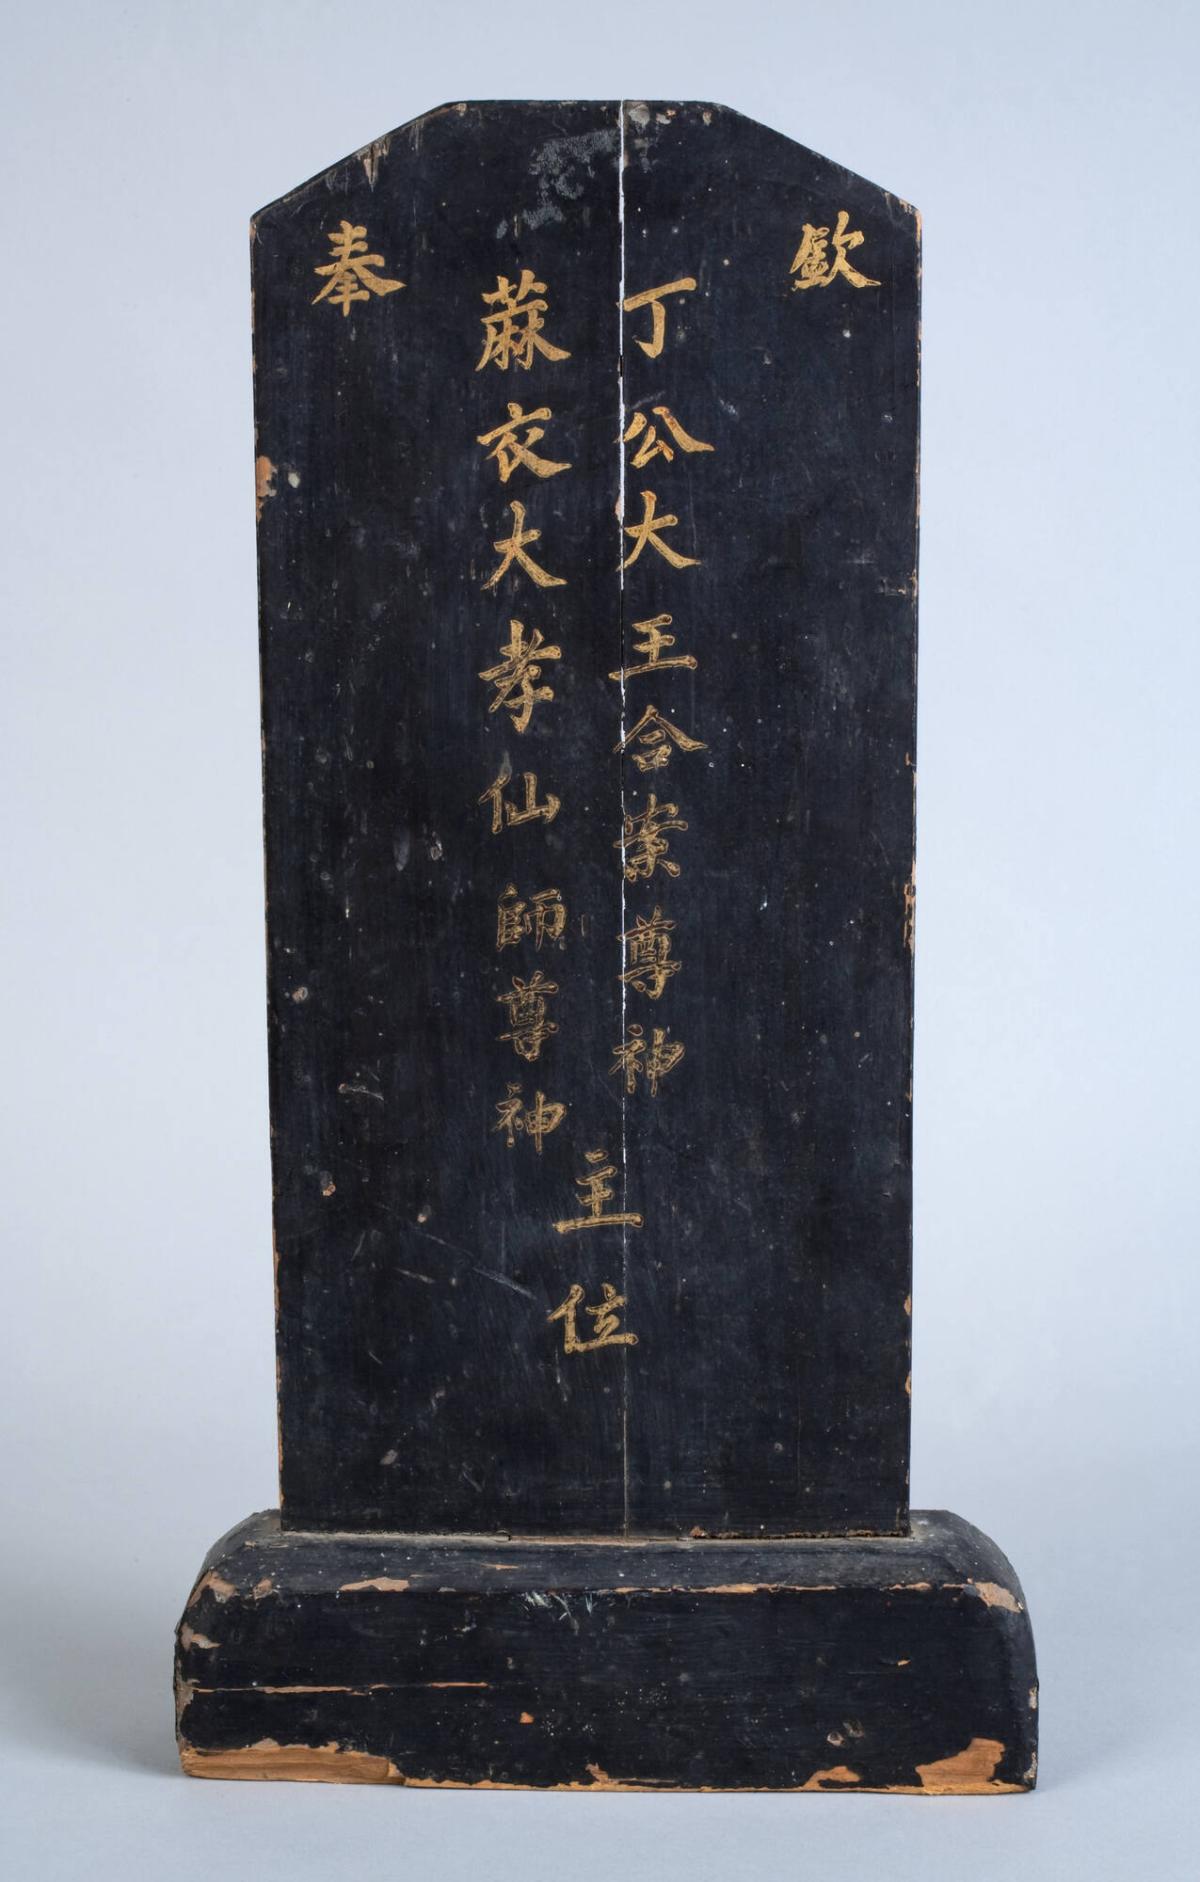 欽
丁公大王合案尊神
蔴衣大孝仙師尊神
主位
奉